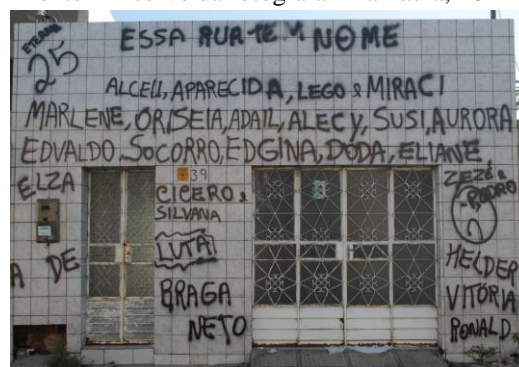 ETERNA
25
ESSA RUA TEM NOME
ALCEU, APARECIDA, LEGO & MIRACI
MARLENE, ORISEIA, ADAIL, ALECY, SUSI, AURORA
EDVALDO, SOCORRO, EDGINA, DODA, ELIANE
ELZA
39
CICERO &
SILVANA
ZEZÉ &
PEDRO
LUTA
A DE
BRAGA
NETO
HELDER
VITÓRIA
RONALD